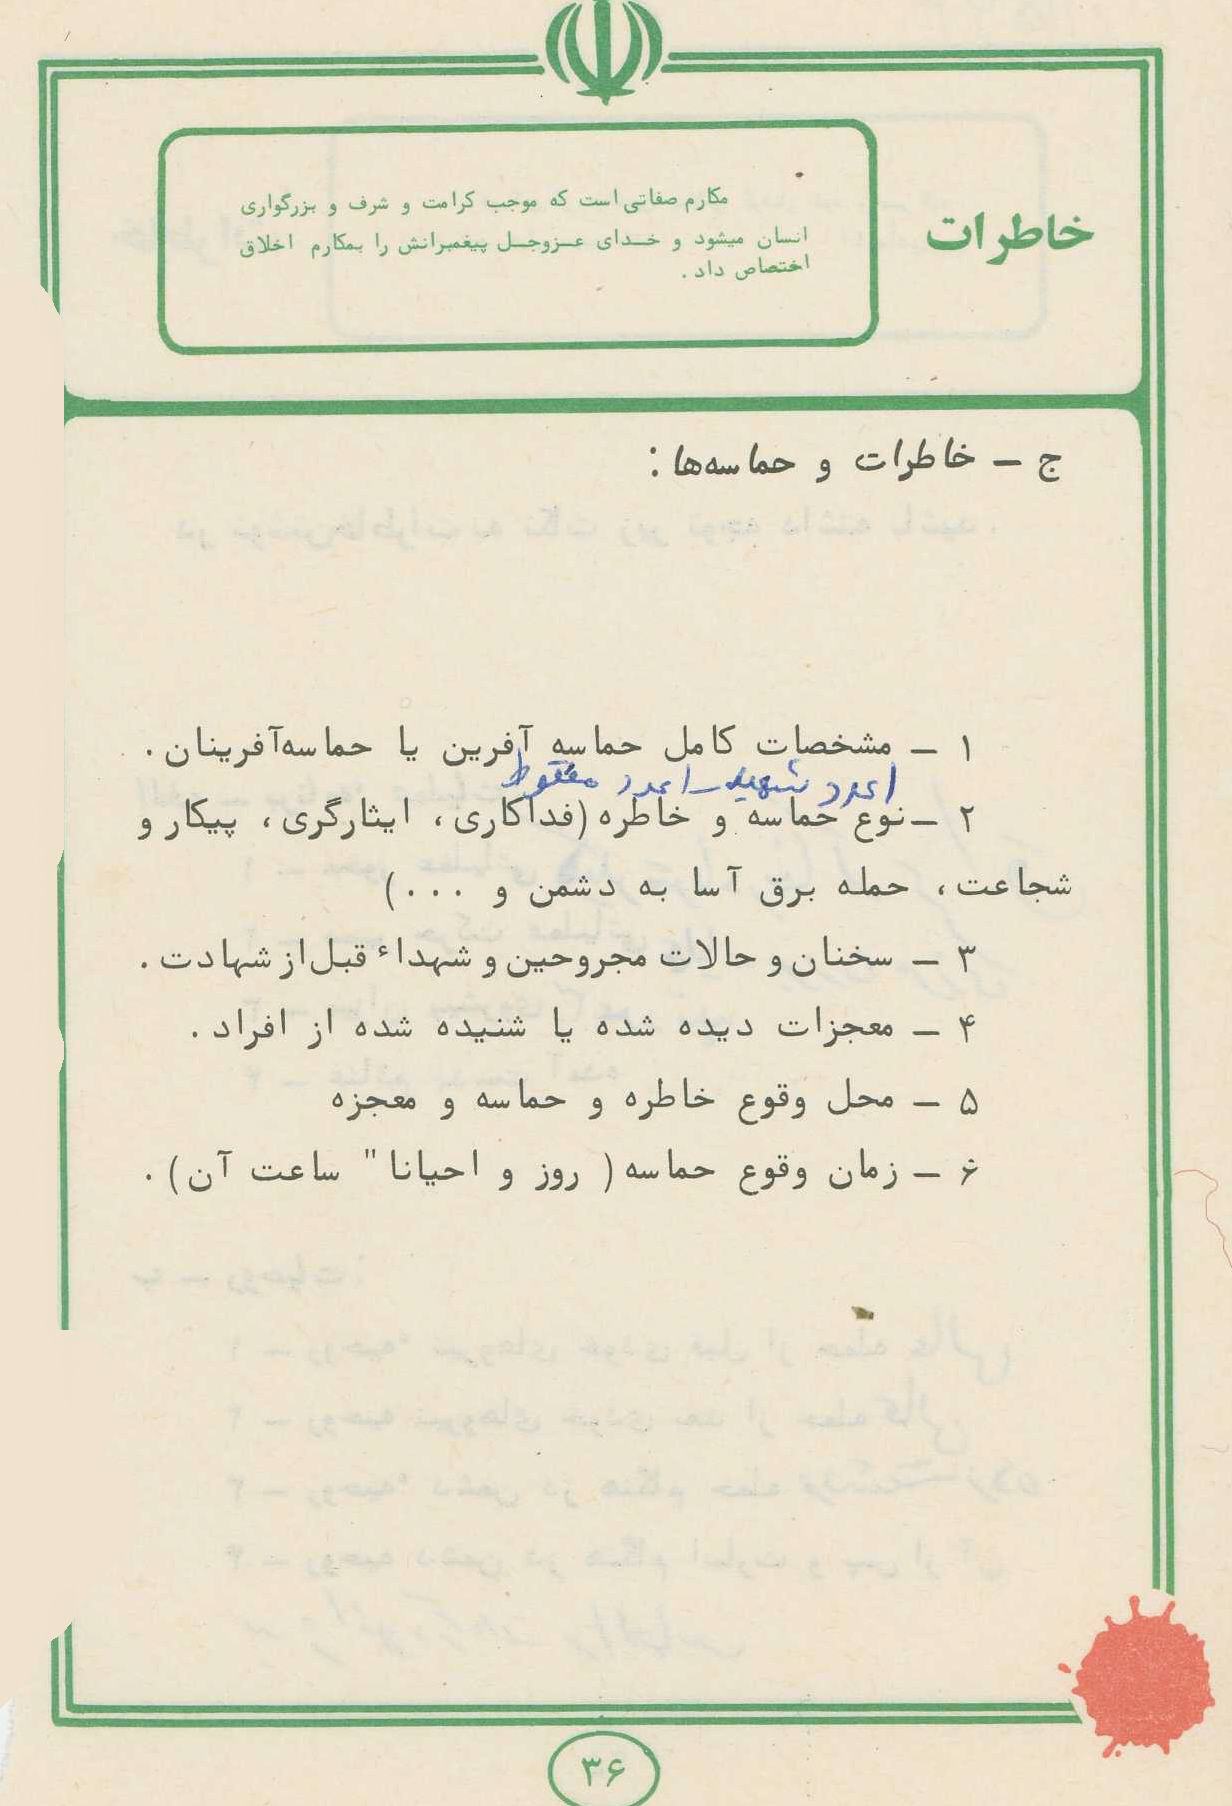 خاطرات
مکارم صفاتی است که موجب کرامت و شرف و بزرگواری
انسان میشود و خدای عزوجل پیغمبرانش را بمکارم اخلاق
اختصاص داد .
ج - خاطرات و حماسه‌ها :
۱ - مشخصات کامل حماسه آفرین یا حماسه‌آفرینان .
شهید
۲ - نوع حماسه و خاطره (فداکاری، ایثارگری، پیکار و
شجاعت، حمله برق آسا به دشمن و ...)
۳ - سخنان و حالات مجروحین و شهداء قبل از شهادت .
۴ - معجزات دیده شده یا شنیده شده از افراد .
۵ - محل وقوع خاطره و حماسه و معجزه
۶ - زمان وقوع حماسه ( روز و احیانا" ساعت آن ) .
۳۶